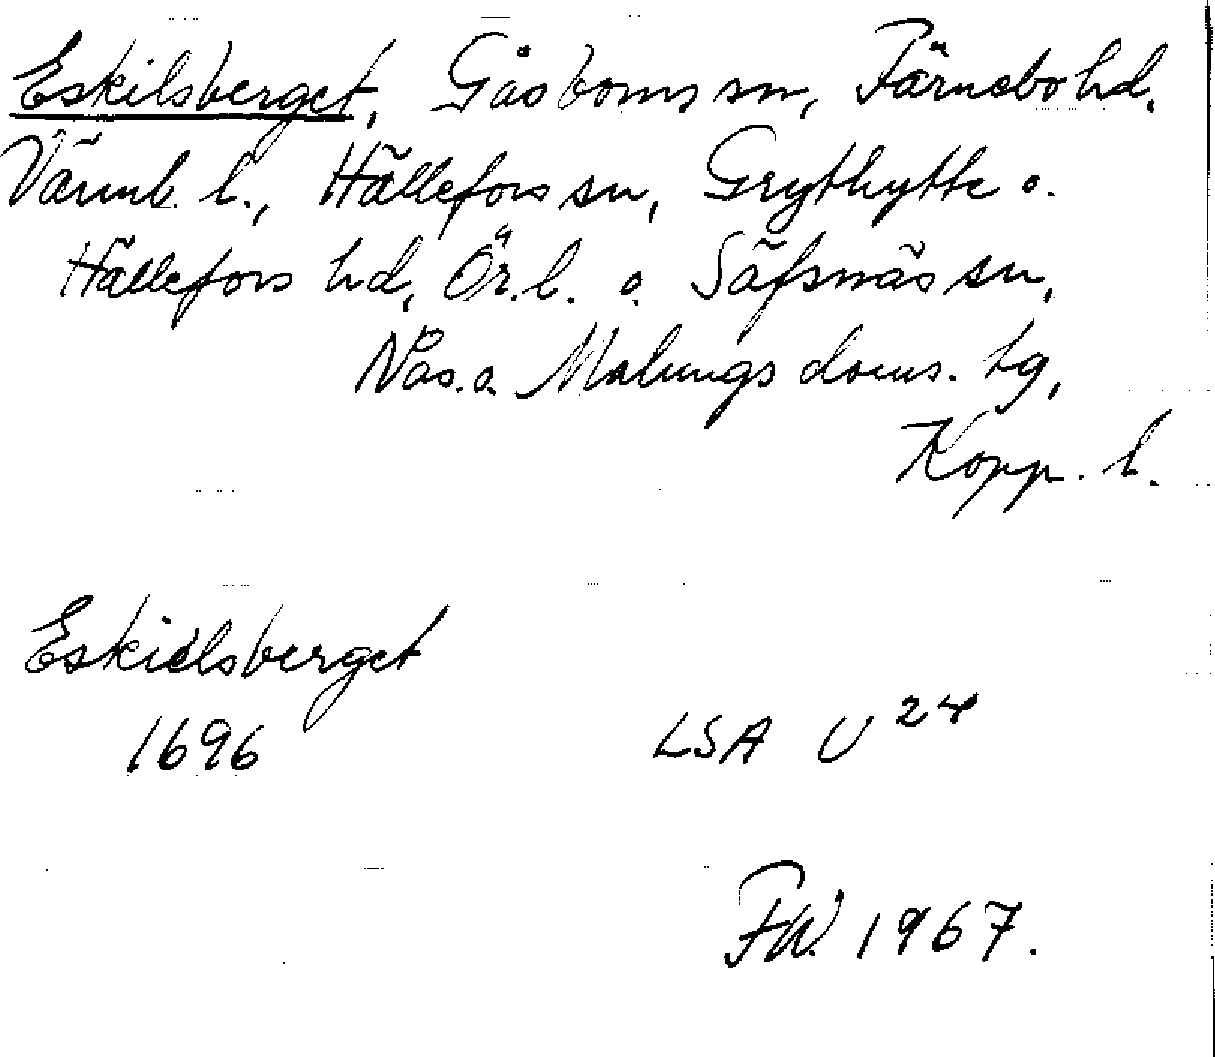 Eskilsberget, Gåsborns sn, Färnebo hd.
Värml. l., Hällefors sn, Grythytte o.
Hällefors hd, Ör. l. o. Säfsnäs sn,
Nås. o. Malungs doms. tg,
Kopp. l.
Eskielsberget
1696 LSA U 24
FW. 1967.